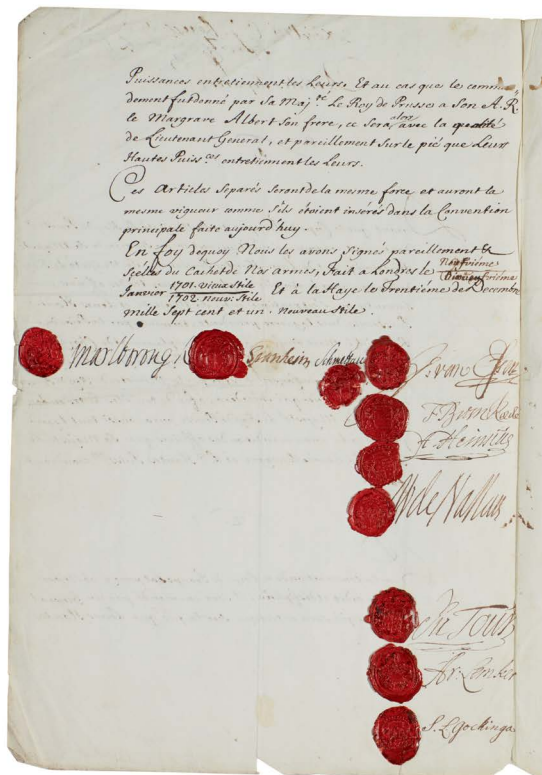 Puissances entretiennent les Leurs. Et au cas que le comman
dement fut donné par Sa Maj.té Le Roy de Prusse a Son A. R.
le Margrave Albert son frere, ce sera alors avec la qualité
de Lieutenant General, et pareillement sur le pié que Leurs
Hautes Puiss.ces entretiennent les Leurs.
Ces Articles separés seront de la mesme force et auront la
mesme vigueur comme s'ils étoient inserés dans la Convention
principale faite aujourd'huy.
En foy dequoy Nous les avons signé pareillement &
scellés du Cachet de Nos armes, Fait a Londres le
Janvier 1701. vieux Stile / 1702. nouv: Stile Et à la Haye le Trentiéme de Decembre
Mille Sept cent et un. Nouveau Stile.
Marlboroug
Schmettau
J: van
W de Nassau
S. L. Gockinga